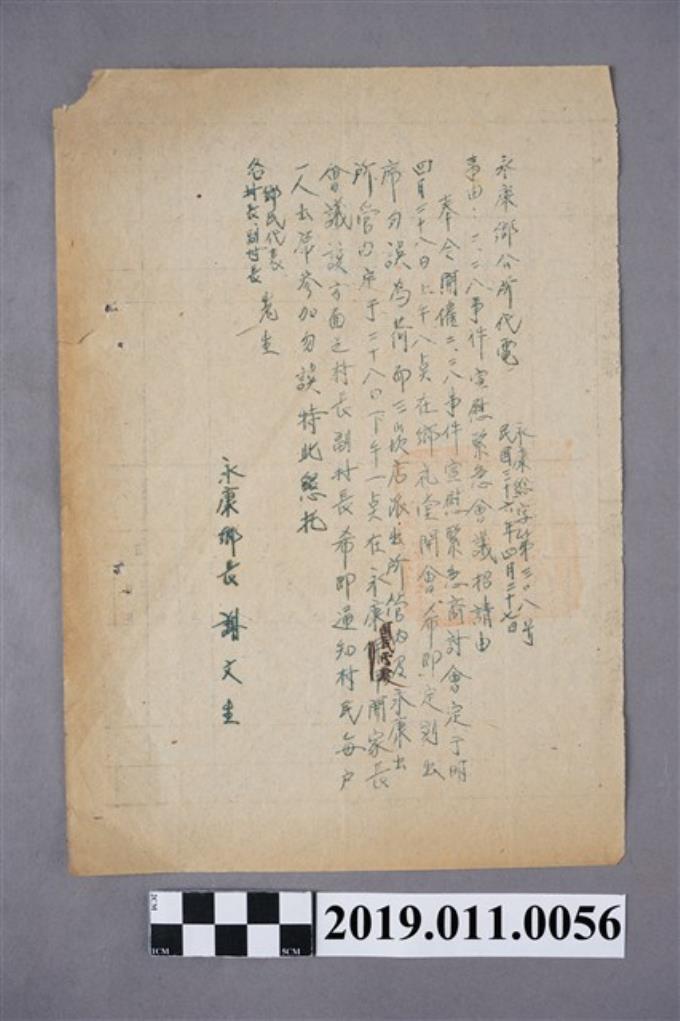 永康鄉公所代電
永康總字第三〇八号
民國三十六年四月二十七日
事由：二、二八事件宣慰緊急會議招請由
奉令開催二、二八事件宣慰緊急商討會定于明
四月二十八日上午八点在鄉礼堂開會希即定刻出
席勿誤為荷而三崁店派出所管內及永康出
所管內定于二十八日下午一点在永康國民学校開家長
會議該方面之村長副村長希即通知村民每户
一人出席參加勿誤特此懇托
鄉民代表
各村長、副村長 先生
永康鄉長 謝文生
2CM
1CM
5CM
2019.011.0056